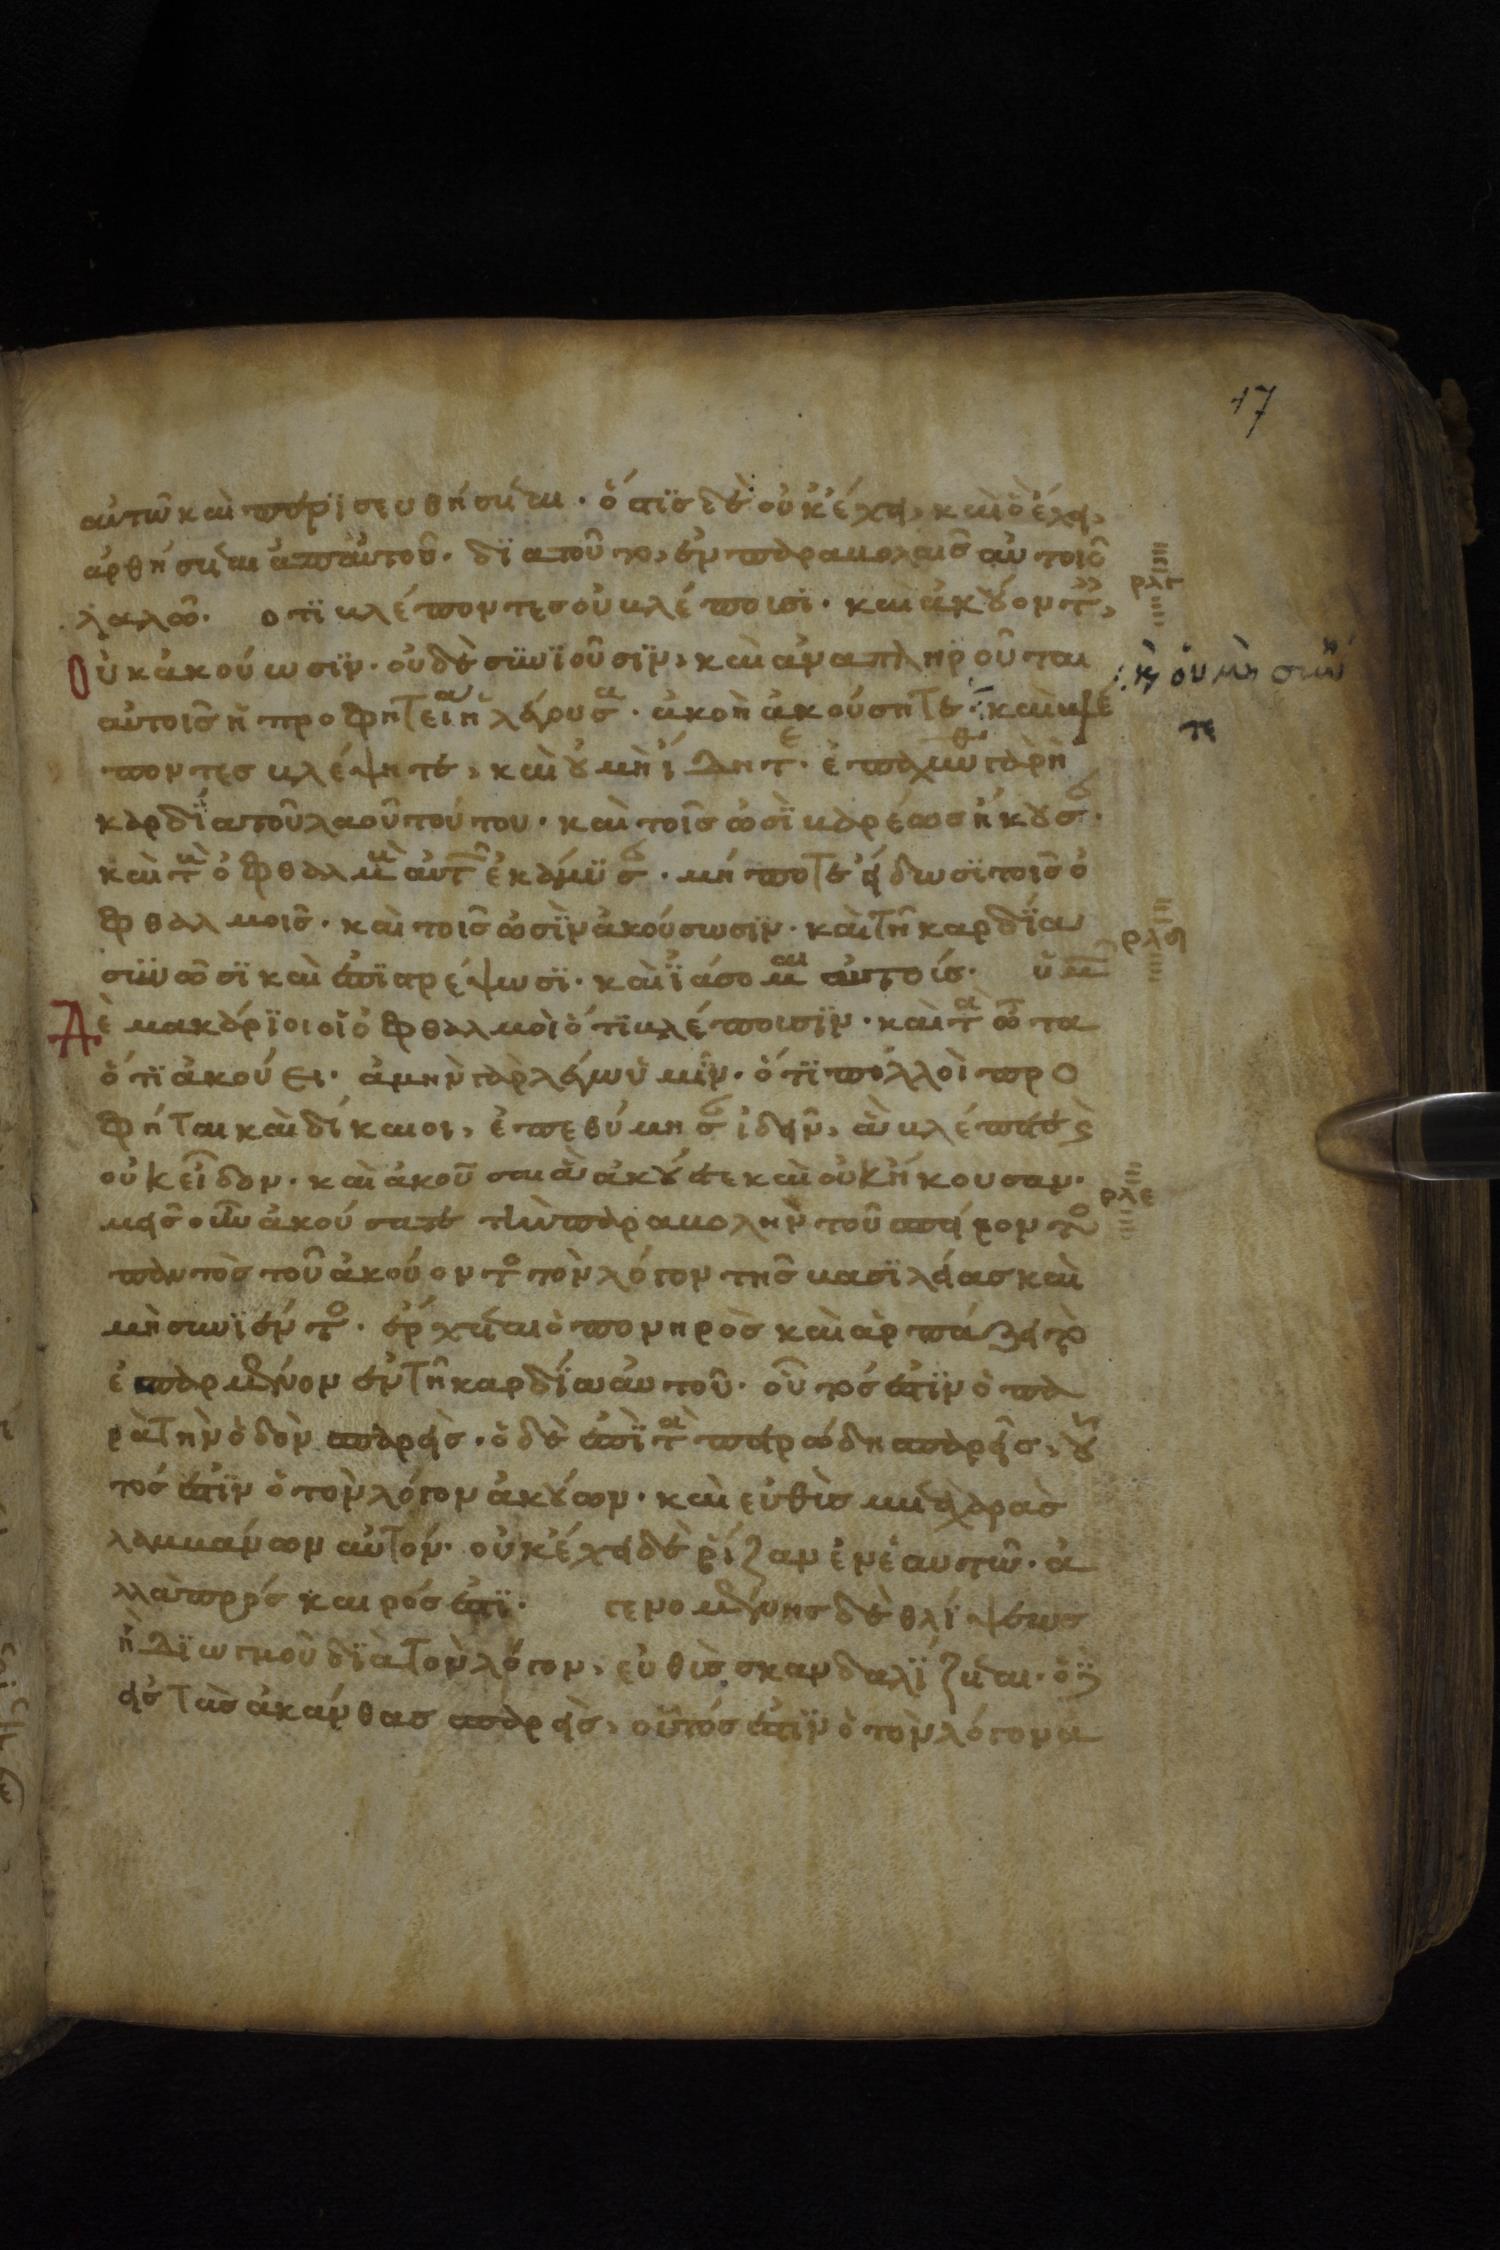 17
αὐτῶ καὶ περϊσευθήσεται · ὅστϊσ δὲ οὐκ ἔχει, καὶ ὃ ἔχει,
ἀρθήσεται ἀπ αὐτοῦ · δϊατοῦτο, ἐν παραβολαισ αὐτοισ
ρλγ
λαλῶ · οτϊ βλέποντεσ οὐ βλέποισϊ · καὶ ἀκούοντες,
Οὐκ ἀκούωσϊν · οὐδὲ σϋνϊοῦσϊν, καὶ ἀναπληροῦται
κ οὐ μὴ συνῆτε
αὐτοισ ἡ προφητεία ἡ λέγουσα · ἀκοῆ ἀκούσητε · καὶ βλέ
ποντεσ βλέψητε, καὶ οὐ μὴ ἴδητε · ἐπαχύνθη γὰρ ἡ
καρδϊα τοῦ λαοῦ τούτου · καὶ τοῖσ ὠσϊ βαρέωσ ἤκουσαν ·
καὶ τοὺς ὀφθαλμοὺς αὐτῶν ἐκάμϋσαν · μήποτε ἴδωσϊ τοισ ὀ
φθαλμοισ · καὶ τοισ ὠσϊν ἀκούσωσϊν · καὶ τῆ καρδϊα
ρλδ
σϋνῶσϊ καὶ ἐπϊστρέψωσϊ · καὶ ϊάσομαι αὐτοισ · ὑμῶν
Δὲ μακάρϊοι οἱ ὀφθαλμοὶ ὅτϊ βλέποισϊν · καὶ τὰ ὦτα
ὅτϊ ἀκούει · ἀμὴν γὰρ λέγω ὑμϊν · ὅτϊ πολλοὶ προ
φήται καὶ δίκαιοι, ἐπεθύμησαν ἰδεῖν, ἃ βλέπετε καὶ
οὐκ εἶδον · καὶ ἀκοῦσαι ἃ ἀκούετε καὶ οὐκ ἤκουσαν ·
ρλε
μεισ οὖν ἀκούσατε τὴν παραβολὴν τοῦ σπείροντος
παντὸσ τοῦ ἀκούοντος τὸν λόγον τησ βασϊλείασ καὶ
μὴ συνϊέντος · ἔρχεται ὁ πονηρὸσ καὶ ἁρπάζει τὸ
ἐσπαρμένον ἐν τῆ καρδϊα αὐτοῦ · οὗτοσ ἐστϊν ὁ πα
ρὰ τὴν ὁδὸν σπαρεὶσ · ὁ δὲ ἐπὶ τὰ πετρώδη σπαρεὶσ, οὗ
τοσ ἐστϊν ὁ τὸν λόγον ἀκούων · καὶ εὐθὺσ μετὰ χαρὰσ
λαμβάνων αὐτόν · οὐκ ἔχει δὲ ρίζαν ἐν ἑαυτῶ · ἀ
λλὰ πρόσκαιροσ ἐστϊ · γενομένησ δὲ θλϊψεωσ
ἢ δϊωγμοῦ δϊὰ τὸν λόγον, εὐθὺσ σκανδαλϊζεται · ὁ δὲ
εἰσ τὰσ ἀκάνθασ σπαρεὶσ, οὗτοσ ἐστϊν ὁ τὸν λόγον α